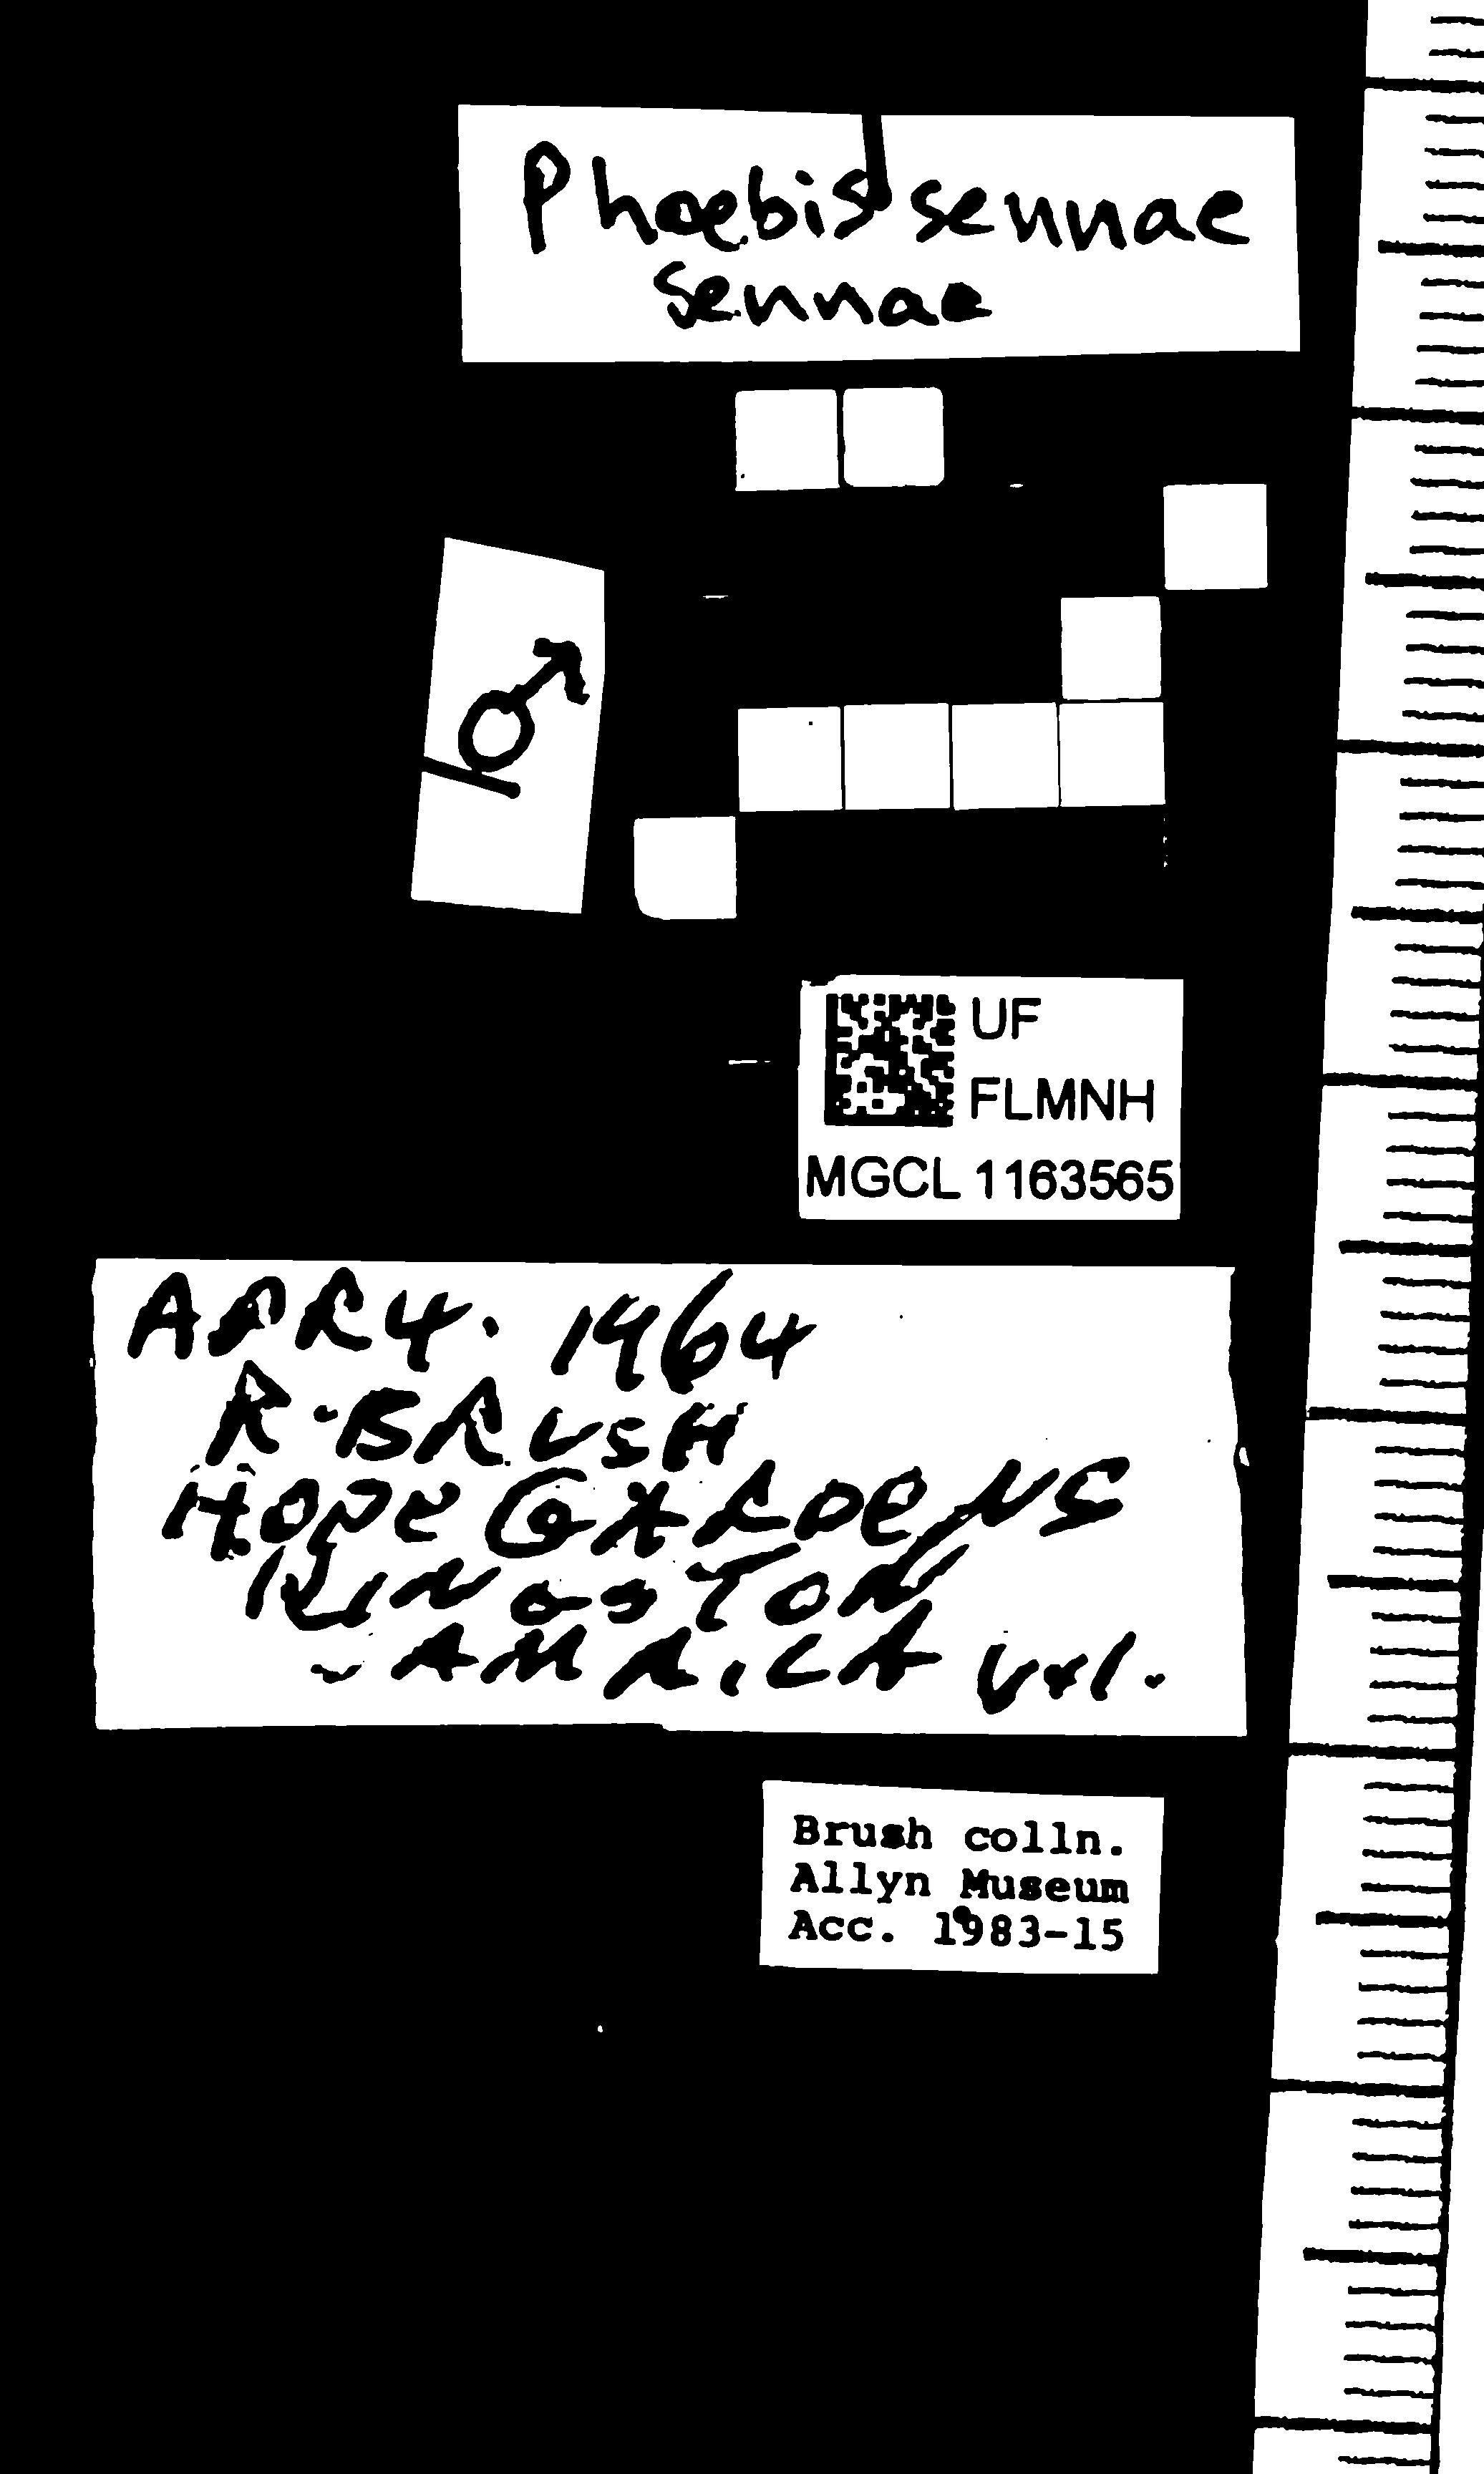 Phoebis sennae
sennae
♂
UF
FLMNH
MGCL 1163565
APR 4. 1964
R. BRUSH
HOPE GARDENS
KINGSTON
JAMAICA WI.
Brush colln.
Allyn Museum
Acc. 1983-15